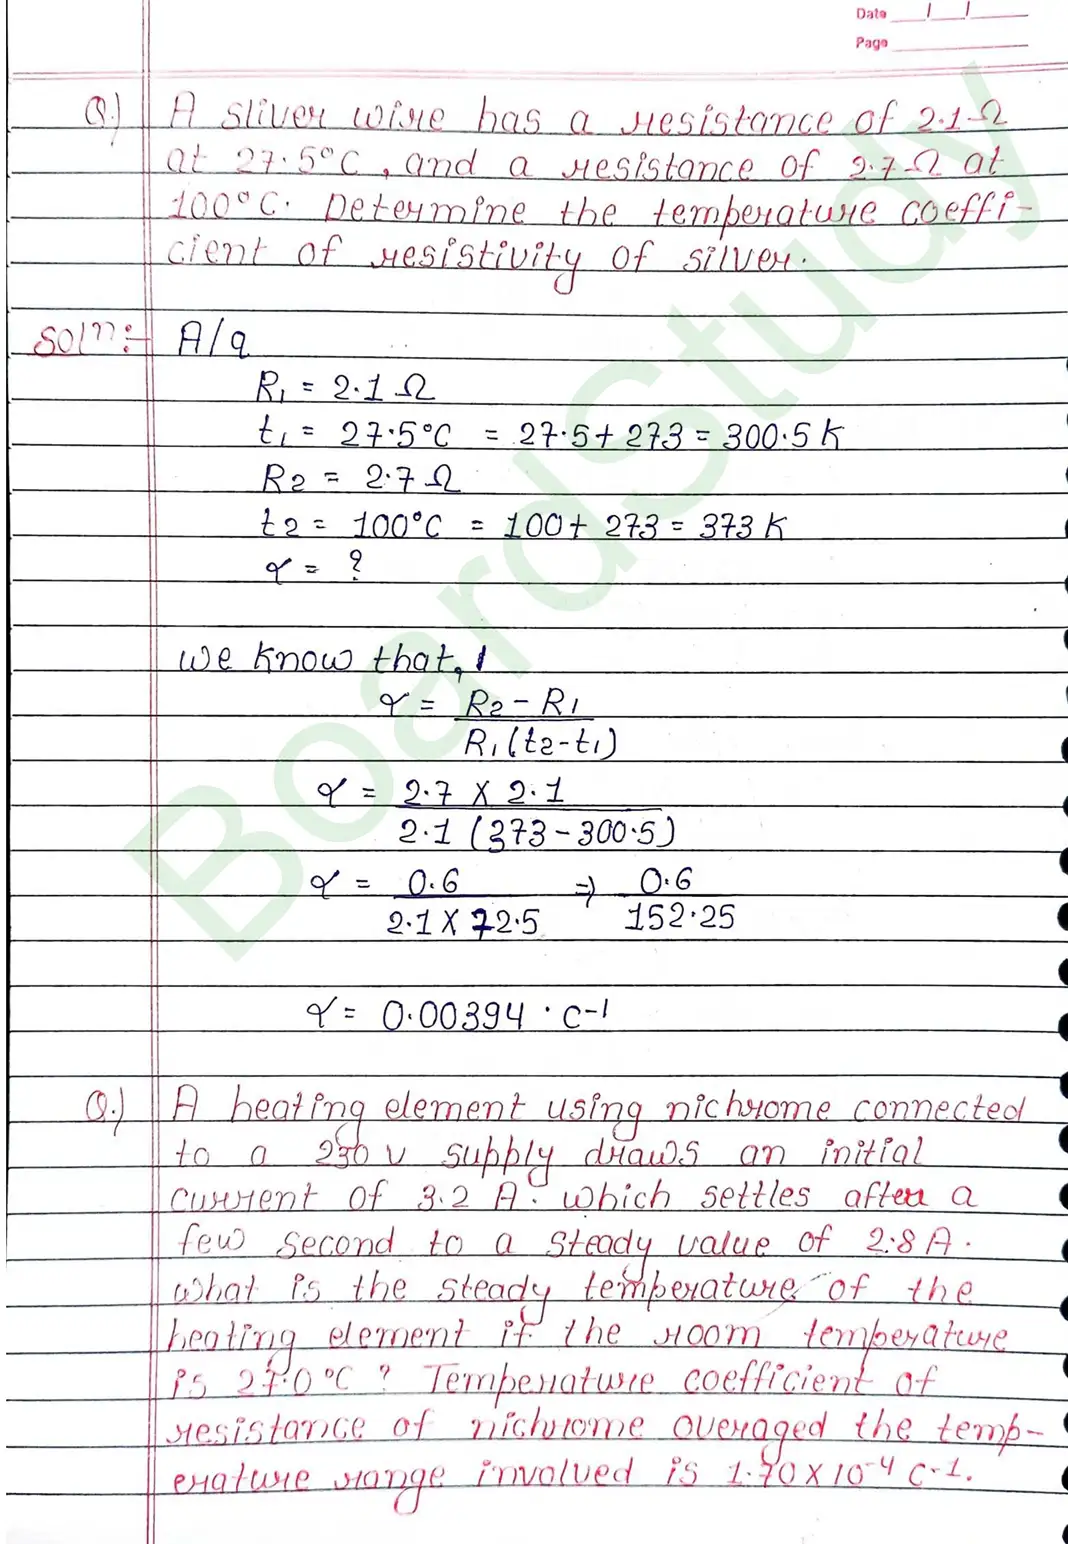 Date
Page
Q.) A sliver wire has a resistance of 2.1 Ω
at 27.5°C, and a resistance of 2.7 Ω at
100°C. Determine the temperature coeffi-
cient of resistivity of silver.
Solⁿ:- A/q
R₁ = 2.1 Ω
t₁ = 27.5°C = 27.5 + 273 = 300.5 K
R2 = 2.7 Ω
t2 = 100°C = 100 + 273 = 373 K
α = ?
we know that,
α = R2 - R1
R₁ (t2 - t1)
α = 2.7 X 2.1
2.1 (373 - 300.5)
α = 0.6 ⇒ 0.6
2.1 X 72.5 152.25
α = 0.00394 · c-1
Q.) A heating element using nichrome connected
to a 230 V supply draws an initial
current of 3.2 A. which settles after a
few second to a steady value of 2.8 A.
what is the steady temperature of the
heating element if the room temperature
is 27.0 °C ? Temperature coefficient of
resistance of nichrome averaged the temp-
erature range involved is 1.70 X 10⁻⁴ C-1.
BoardStudy